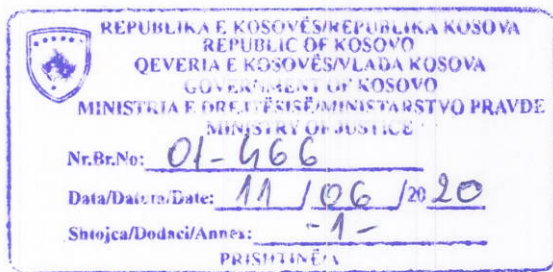 REPUBLIKA E KOSOVËS/REPUBLIKA KOSOVA
REPUBLIC OF KOSOVO
QEVERIA E KOSOVËS/VLADA KOSOVA
GOVERNMENT OF KOSOVO
MINISTRIA E DREJTËSISË/MINISTARSTVO PRAVDE
MINISTRY OF JUSTICE
Nr.Br.No: 01-466
Data/Datum/Date: 11 / 06 / 20 20
Shtojca/Dodaci/Annex: -1-
PRISHTINË/A